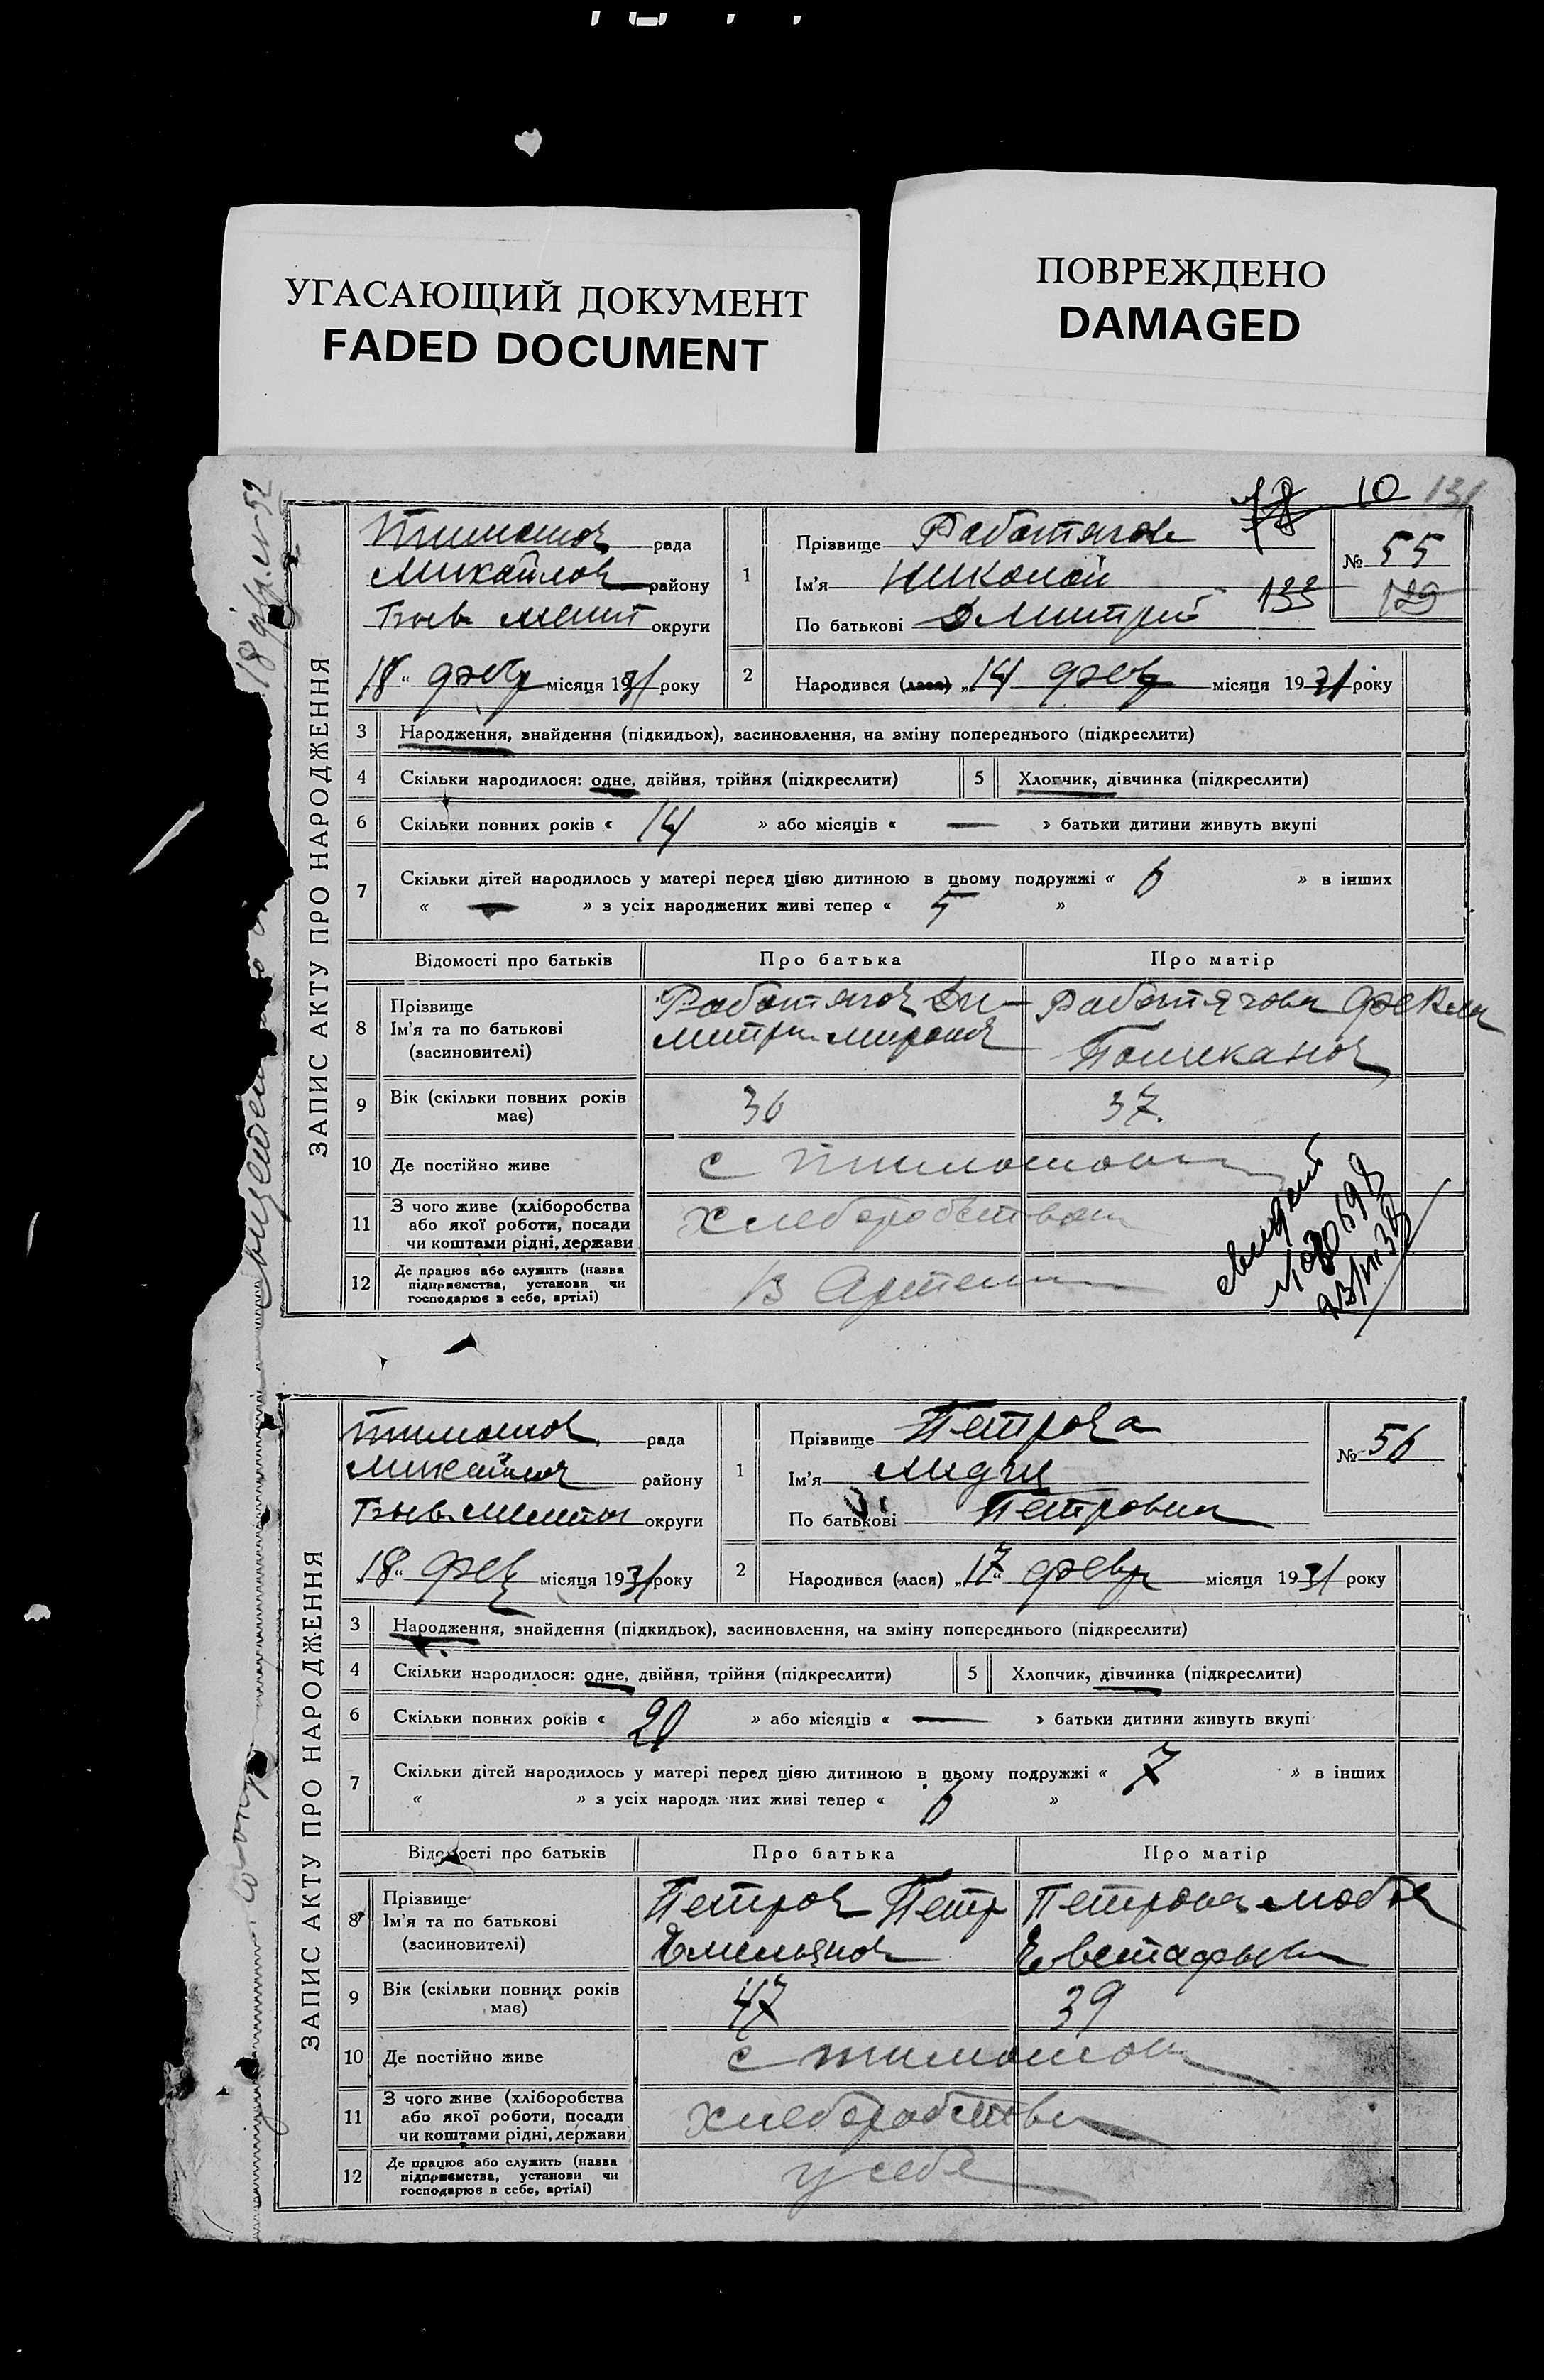 УГАСАЮЩИЙ ДОКУМЕНТ
FADED DOCUMENT
ПОВРЕЖДЕНО
DAMAGED
10 131
ЗАПИС АКТУ ПРО НАРОДЖЕННЯ
Тимошов рада
Михайлов району
Бывъ Мелит округи
18 " февр місяця 1931 року
1 Прізвище Работягов
Ім'я Николай
По батькові Дмитрий
№ 55
133 129
2 Народився (лася) „ 14 февр місяця 1931 року
3 Народження, знайдення (підкидьок), засиновлення, на зміну попереднього (підкреслити)
4 Скільки народилося: одне, двійня, трійня (підкреслити) 5 Хлопчик, дівчинка (підкреслити)
6 Скільки повних років « 14 » або місяців « — » батьки дитини живуть вкупі
7 Скільки дітей народилось у матері перед цією дитиною в цьому подружжі « 6 » в інших
« — » з усіх народжених живі тепер « 5 »
Відомості про батьків Про батька Про матір
8 Прізвище
Ім'я та по батькові
(засиновителі)
Работягов Ди-
митри Миронов
Работягова Фекла
9 Вік (скільки повних років
має)
36 37.
10 Де постійно живе с Тимошовка
11 З чого живе (хліборобства
або якої роботи, посади
чи коштами рідні, держави
Хлеборобством
12 Де працює або служить (назва
підприємства, установи чи
господарює в себе, артілі)
В Артели
ЗАПИС АКТУ ПРО НАРОДЖЕННЯ
Тимошов рада
Михайлов району
Бывъ Мелитоп округи
18 " февр місяця 1931 року
1 Прізвище Петрова
Ім'я Лидия
По батькові Петровна
№ 56
2 Народився (лася) „ 17 " февр місяця 1931 року
3 Народження, знайдення (підкидьок), засиновлення, на зміну попереднього (підкреслити)
4 Скільки народилося: одне, двійня, трійня (підкреслити) 5 Хлопчик, дівчинка (підкреслити)
6 Скільки повних років « 20 » або місяців « — » батьки дитини живуть вкупі
7 Скільки дітей народилось у матері перед цією дитиною в цьому подружжі « 7 » в інших
« » з усіх народж них живі тепер « 6 »
Відомості про батьків Про батька Про матір
8 Прізвище
Ім'я та по батькові
(засиновителі)
Петров Петр
Емельянов
Петрова Любов
Евстафьев
9 Вік (скільки повних років
має)
47 39
10 Де постійно живе с Тимошовка
11 З чого живе (хліборобства
або якої роботи, посади
чи коштами рідні, держави
Хлеборобства
12 Де працює або служить (назва
підприємства, установи чи
господарює в себе, артілі)
у себе